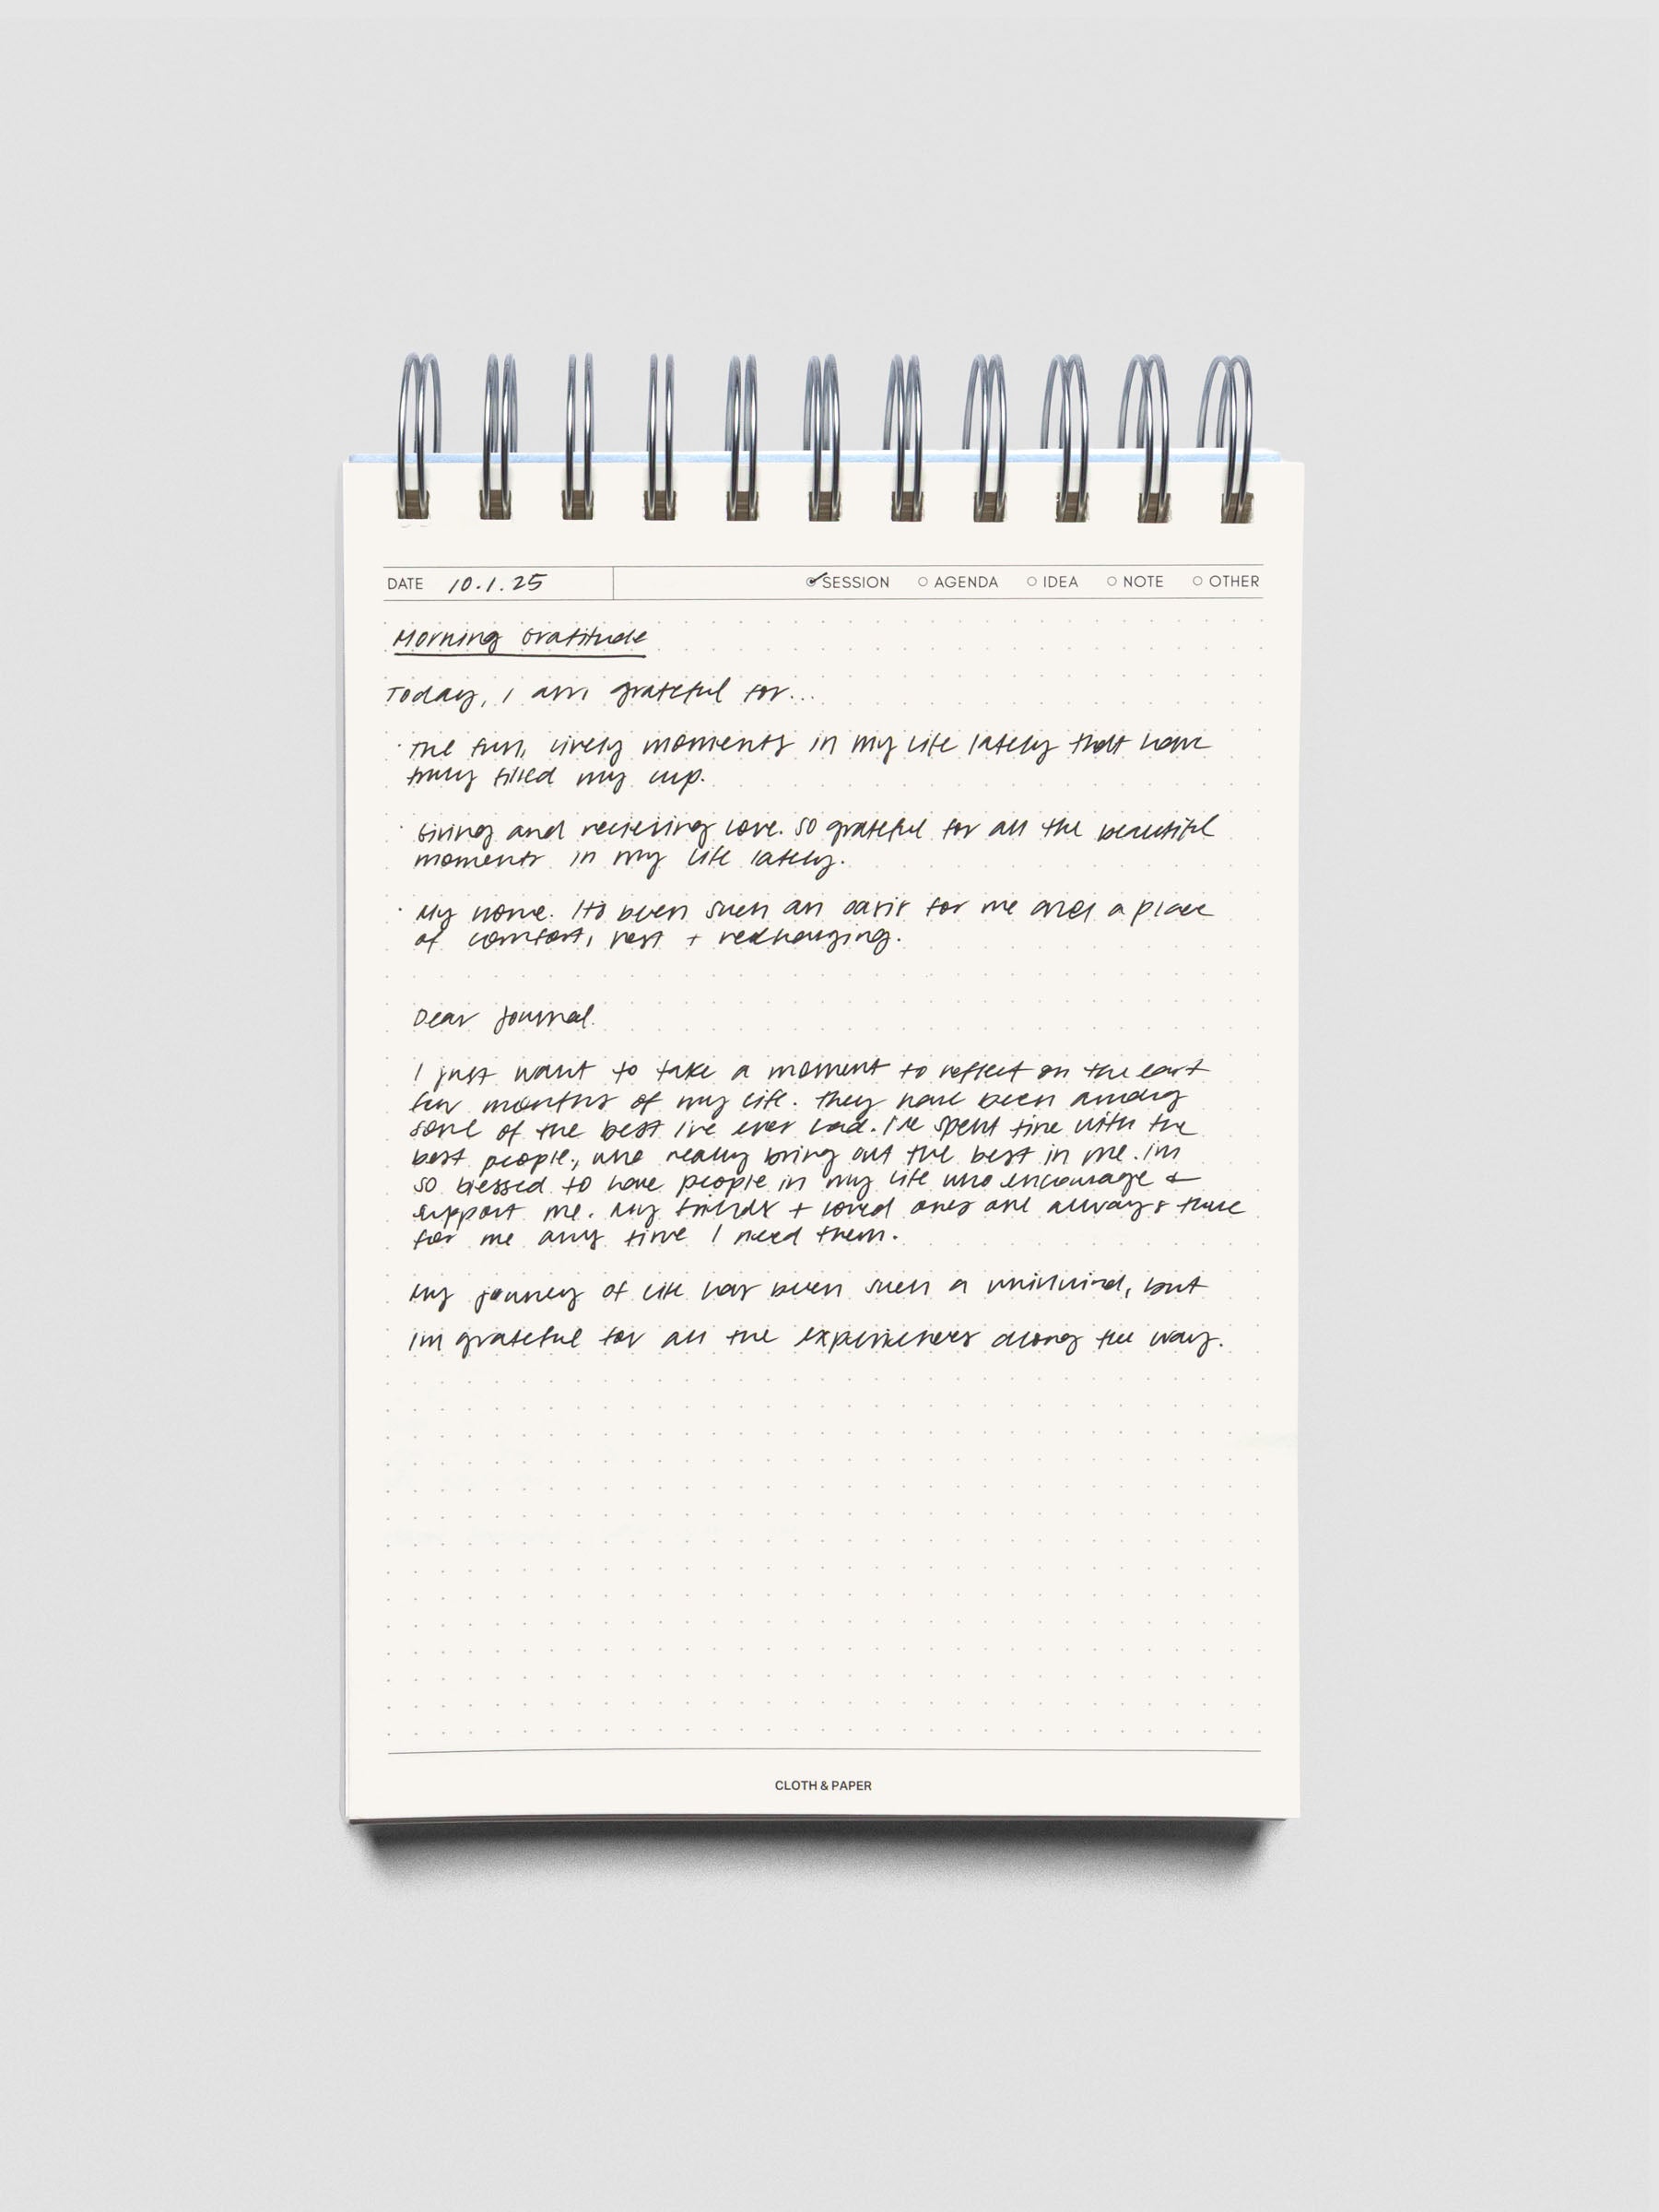 DATE 10.1.25 SESSION AGENDA IDEA NOTE OTHER
Morning Gratitude
Today, I am grateful for...
· The fun, lively moments in my life lately that have
truly filled my cup.
· Giving and recieving love. So grateful for all the beautiful
moments in my life lately.
· My home. Its been such an oasis for me and a place
of comfort, rest + recharging.
Dear Journal.
I just want to take a moment to reflect on the last
few months of my life. They have been among
some of the best I've ever had. I've spent time with the
best people, who really bring out the best in me. Im
so blessed to have people in my life who encourage &
support me. My friends + loved ones are always there
for me any time I need them.
My journey of life has been such a whirlwind, but
Im grateful for all the experiences along the way.
CLOTH & PAPER